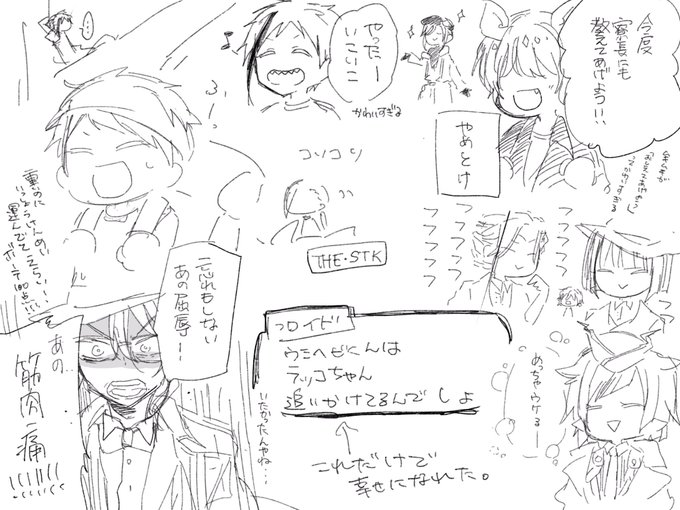 今度
寮長にも
教えてあげよう…!
やったー
いこいこ
かわいすぎる
♪
…
やめとけ
ふーっ
コソコソ
THE・STK
重いのに
いっしょうけんめい
運んでてえらい…!
ボーナス100点!!!
忘れもしない
あの屈辱ー
あの…
筋肉痛
!!!!!!
フフフフフ
フフフフフ
めっちゃウケるー
フロイド
ウミヘビくんは
ラッコちゃん
追いかけてるんでしょ
いたかったんやね…
これだけで
幸せになれた。